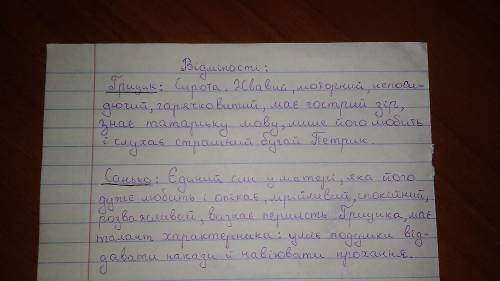 Відміності:
Грицик: Сирота. Жвавий, моторний, непоси-
дючий, гарячковитий, має гострий зір,
знає татарську мову, лише його любить
і слухає страшний бугай Петрик.
Санько: Єдиний син у матері, яка його
дуже любить і опікає, мрійливий, спокійний,
розважливий, визнає першість Грицика, має
талант характерника: уміє подумки від-
давати накази й навіювати прохання.